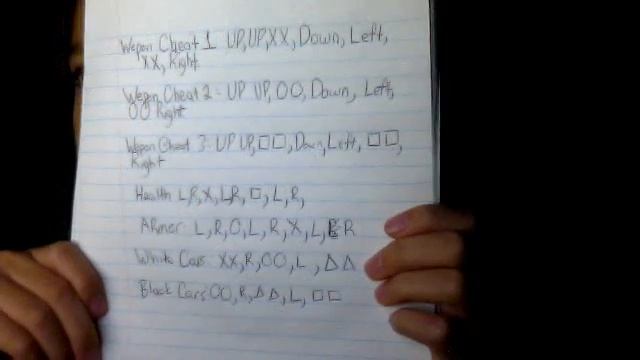 Wepon Cheat 1 UP, UP, XX, Down, Left,
XX, Right
Wepon Cheat 2 - UP UP, OO, Down, Left,
OO Right
Wepon Cheat 3 - UP UP, □□, Down, Left, □□,
Right
Health L,R,X,L,R, □, L, R,
ARmer L, R, O, L, R, X, L, R
White Cars XX, R, OO, L, △△
Black Cars OO, R, △△, L, □□